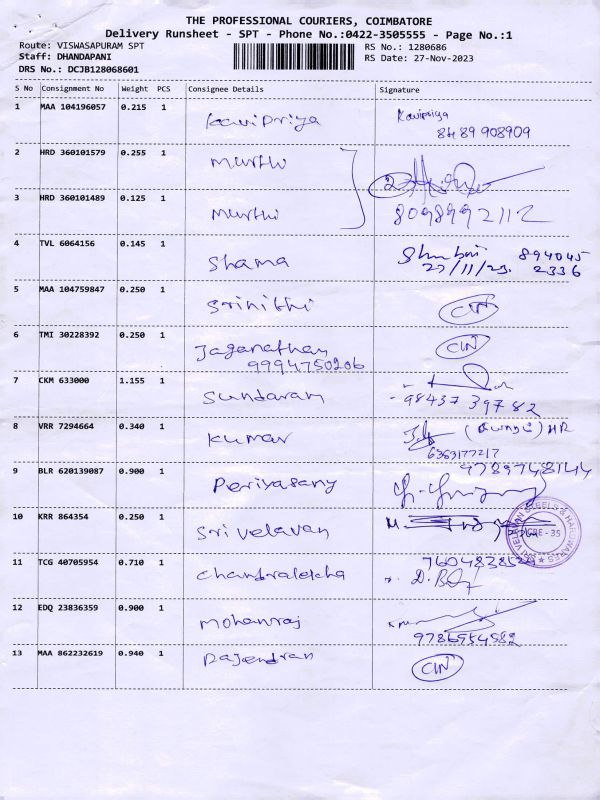 THE PROFESSIONAL COURIERS, COIMBATORE
Delivery Runsheet - SPT - Phone No.:0422-3505555 - Page No.:1
Route: VISWASAPURAM SPT RS No.: 1280686
Staff: DHANDAPANI RS Date: 27-Nov-2023
DRS No.: DCJB128068601
S No Consignment No Weight PCS Consignee Details Signature
1 MAA 104196057 0.215 1 Kavipriya Kavipriya
8489 908909
2 HRD 360101579 0.255 1 Murthi
3 HRD 360101489 0.125 1 Murthi 8098992112
4 TVL 6064156 0.145 1 Shama 894045
27/11/23. 2336
5 MAA 104759847 0.250 1 Srinithi
6 TMI 30228392 0.250 1 Jaganathan
9994750206
7 CKM 633000 1.155 1 Sundaram
98437 39782
8 VRR 7294664 0.340 1 Kumar HR
6363177217
9 BLR 620139087 0.900 1 Periyasamy 9789748144
10 KRR 864354 0.250 1 Sri velavan
SRI VELAVAN STEELS & HARDWARES
CBE - 35
11 TCG 40705954 0.710 1 Chandralekha
12 EDQ 23836359 0.900 1 Mohanraj
9786554582
13 MAA 862232619 0.940 1 Rajendran